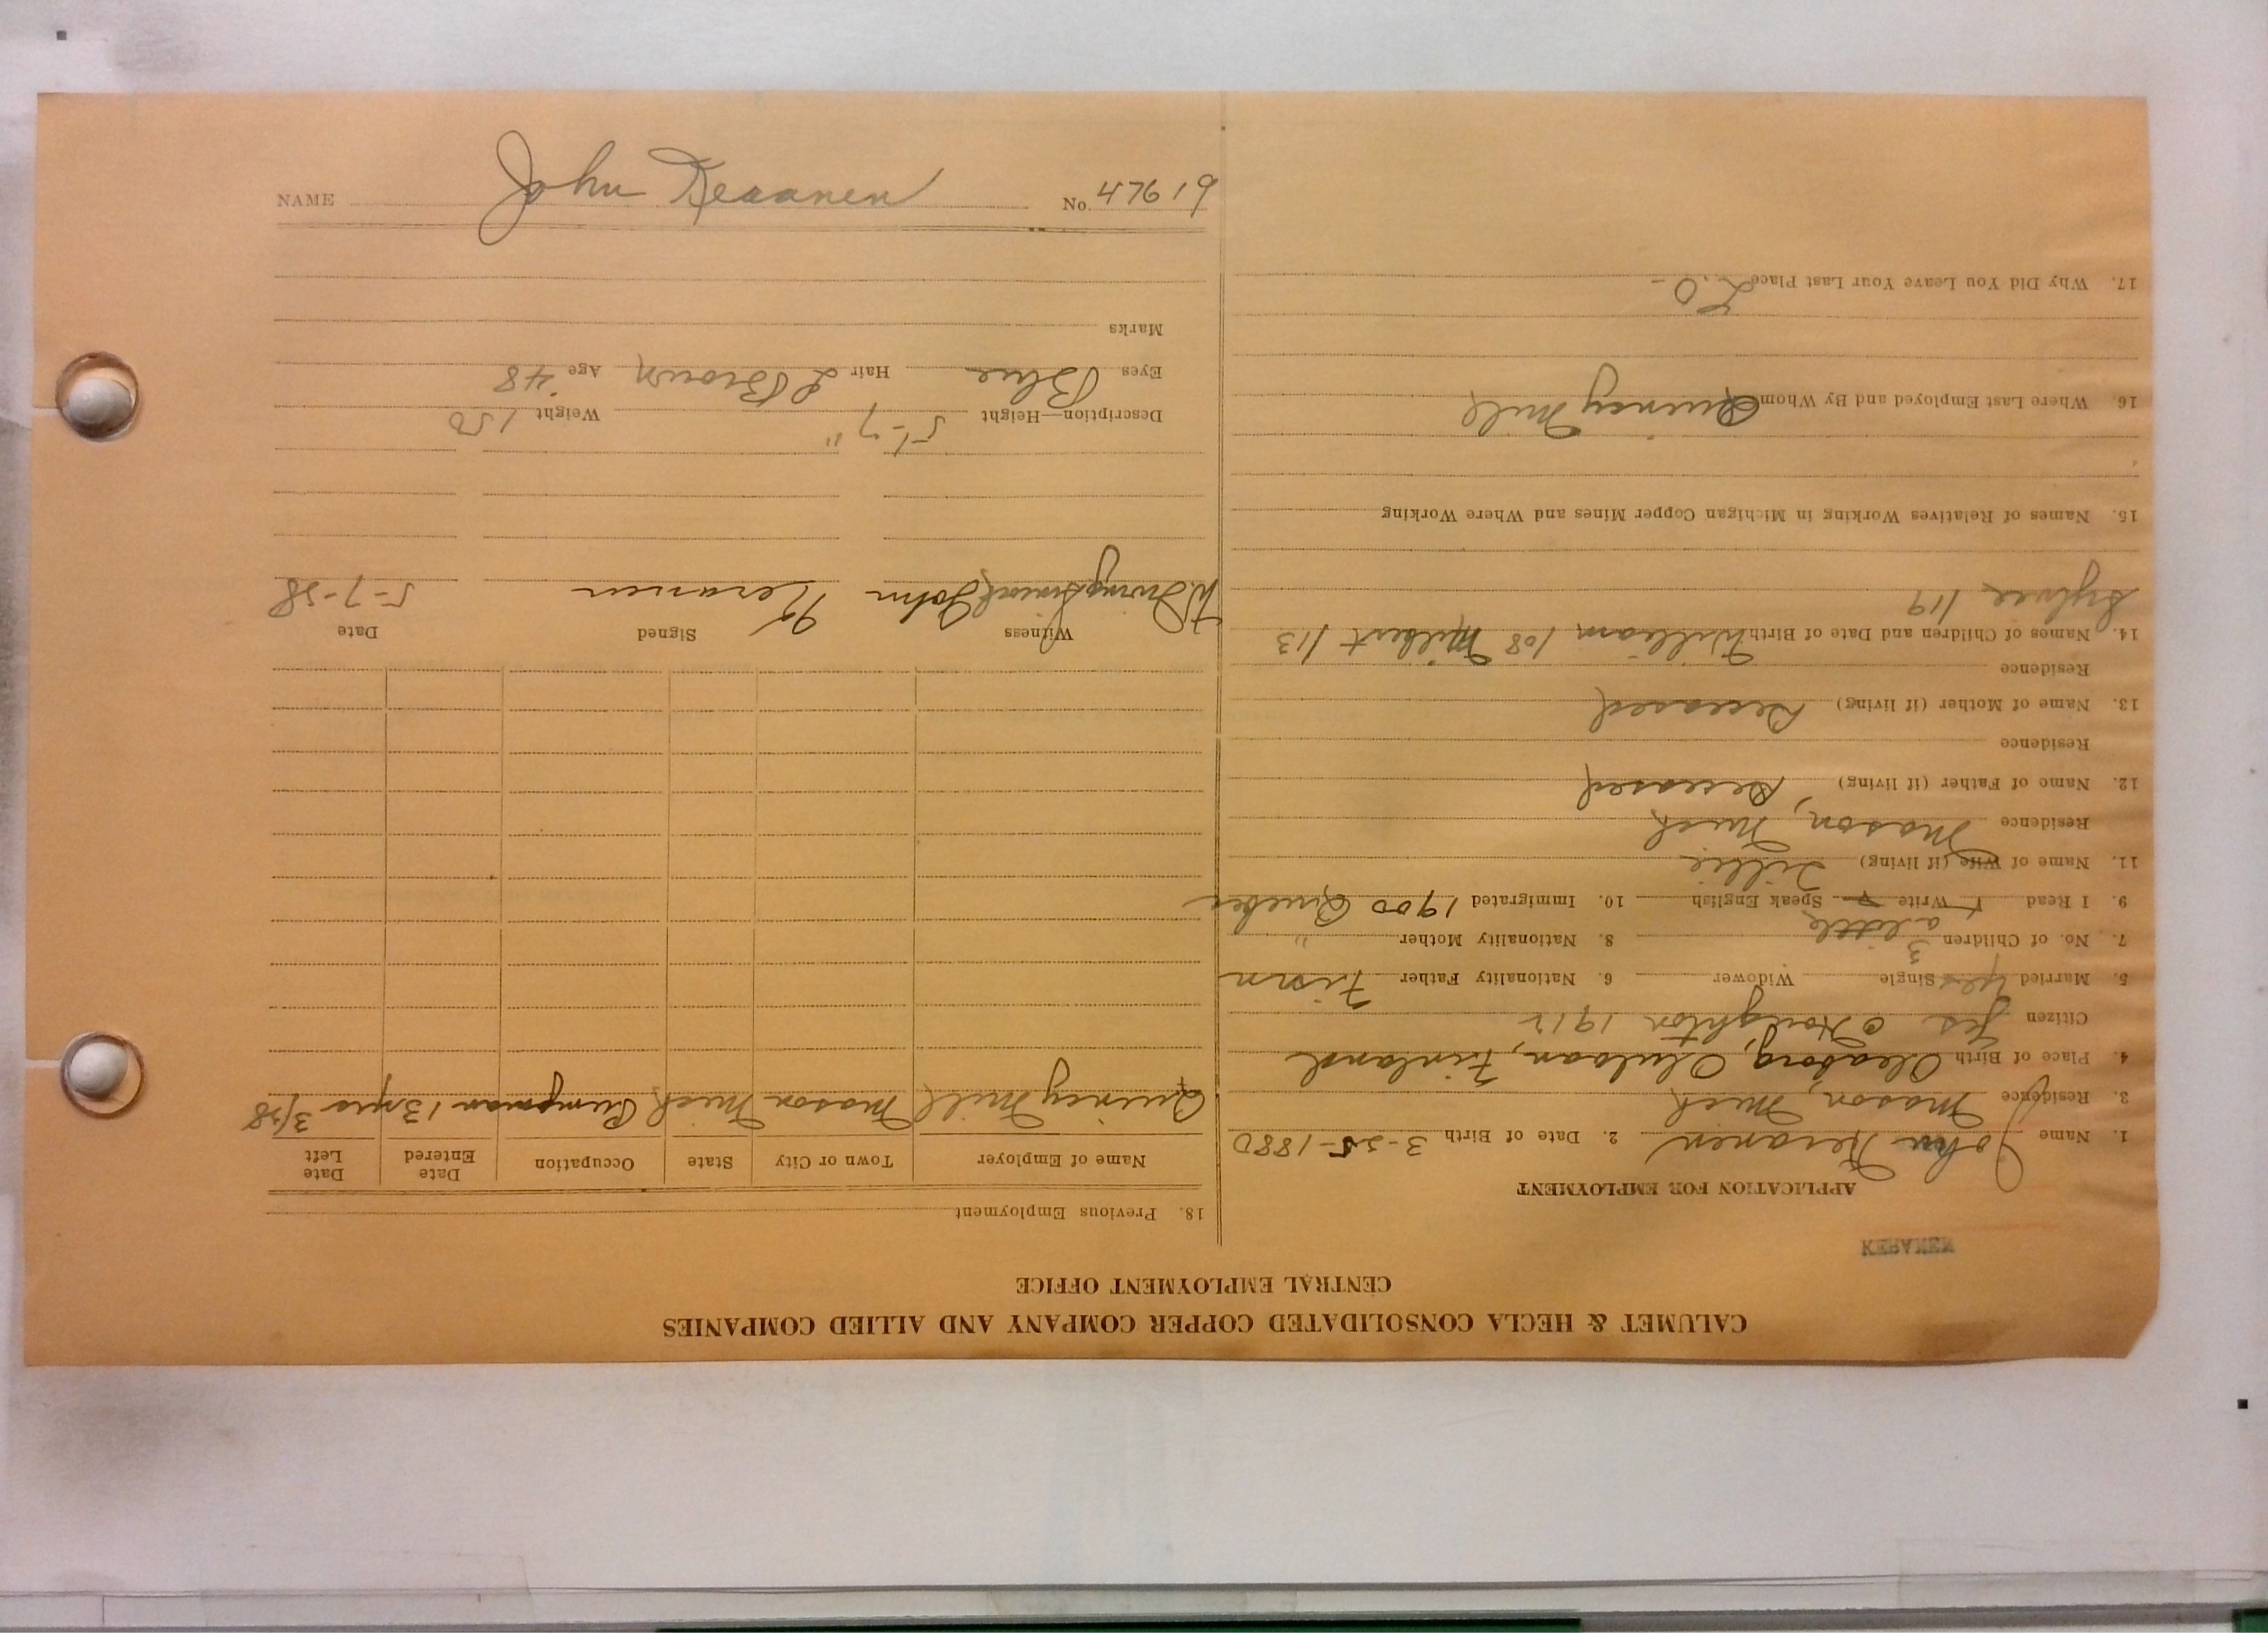 NAME John Keranen No. 47619
CALUMET & HECLA CONSOLIDATED COPPER COMPANY AND ALLIED COMPANIES
CENTRAL EMPLOYMENT OFFICE
KERANEN
APPLICATION FOR EMPLOYMENT
1. Name John Keranen 2. Date of Birth 3-25-1880
3. Residence Mason, Mich
4. Place of Birth Oleaborg, Ouluoan, Finland
Citizen Yes Houghton, 1912
5. Married Yes Single Widower 6. Nationality Father Finn
7. No. of Children 3 8. Nationality Mother "
a little
9. I Read Write Speak English 10. Immigrated 1900 Quebec
11. Name of Wife (if living) Lillie
Residence Mason, Mich
12. Name of Father (if living) Deceased
Residence
13. Name of Mother (if living) Deceased
Residence
14. Names of Children and Date of Birth William /08 Milbert /13
Sylvia /19
15. Names of Relatives Working in Michigan Copper Mines and Where Working
16. Where Last Employed and By Whom Quincy Mill
17. Why Did You Leave Your Last Place L.O-
18. Previous Employment
Name of Employer Town or City State Occupation Date Entered Date Left
Quincy Mill Mason Mich Pumpman 13 yrs 3/38
Witness Signed Date
John Keranen 5-7-38
Description—Height 5'-7" Weight 150
Eyes Blue Hair L Brown Age 48
Marks